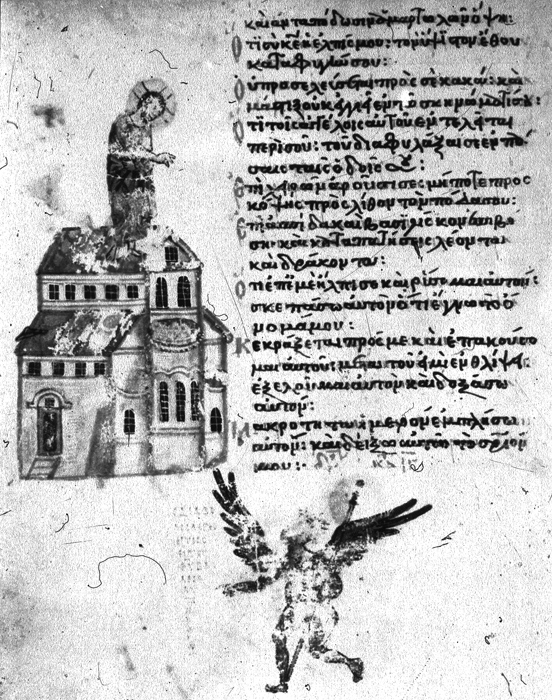 καὶ ἀνταπόδωσιν ἁμαρτωλῶν ὄψη:
Ὅτι σὺ κε ἡ ἐλπίς μου: τὸν ὕψιστον ἔθου
καταφυγήν σου:
Οὐ προσελεύσεται πρὸς σὲ κακά: καὶ
μάστιξ οὐκ ἐγγιεῖ ἐν τῶ σκηνώματί σου:
Ὅτι τοῖς ἀγγέλοις αὐτοῦ ἐντελεῖται
περὶ σοῦ: τοῦ διαφυλάξαι σε ἐν πά
σαις ταῖς ὁδοῖς σου:
Ἐπὶ χειρῶν ἀροῦσί σε: μήποτε προς
κόψης πρὸς λίθον τὸν πόδα σου:
Ἐπὶ ἀσπίδα καὶ βασιλίσκον ἐπιβή
ση: καὶ καταπατήσεις λέοντα
καὶ δράκοντα:
Ὅτι ἐπ' ἐμὲ ἤλπισε καὶ ῥύσομαι αὐτόν:
σκεπάσω αὐτὸν ὅτι ἔγνω τὸ ὄ
νομά μου:
Κεκράξεται πρός με καὶ ἐπακούσο
μαι αὐτοῦ: μετ' αὐτοῦ εἰμι ἐν θλίψει:
ἐξελοῦμαι αὐτὸν καὶ δοξάσω
αὐτόν:
Μακρότητα ἡμερῶν ἐμπλήσω
αὐτόν: καὶ δείξω αὐτῶ τὸ σριόν
μου: